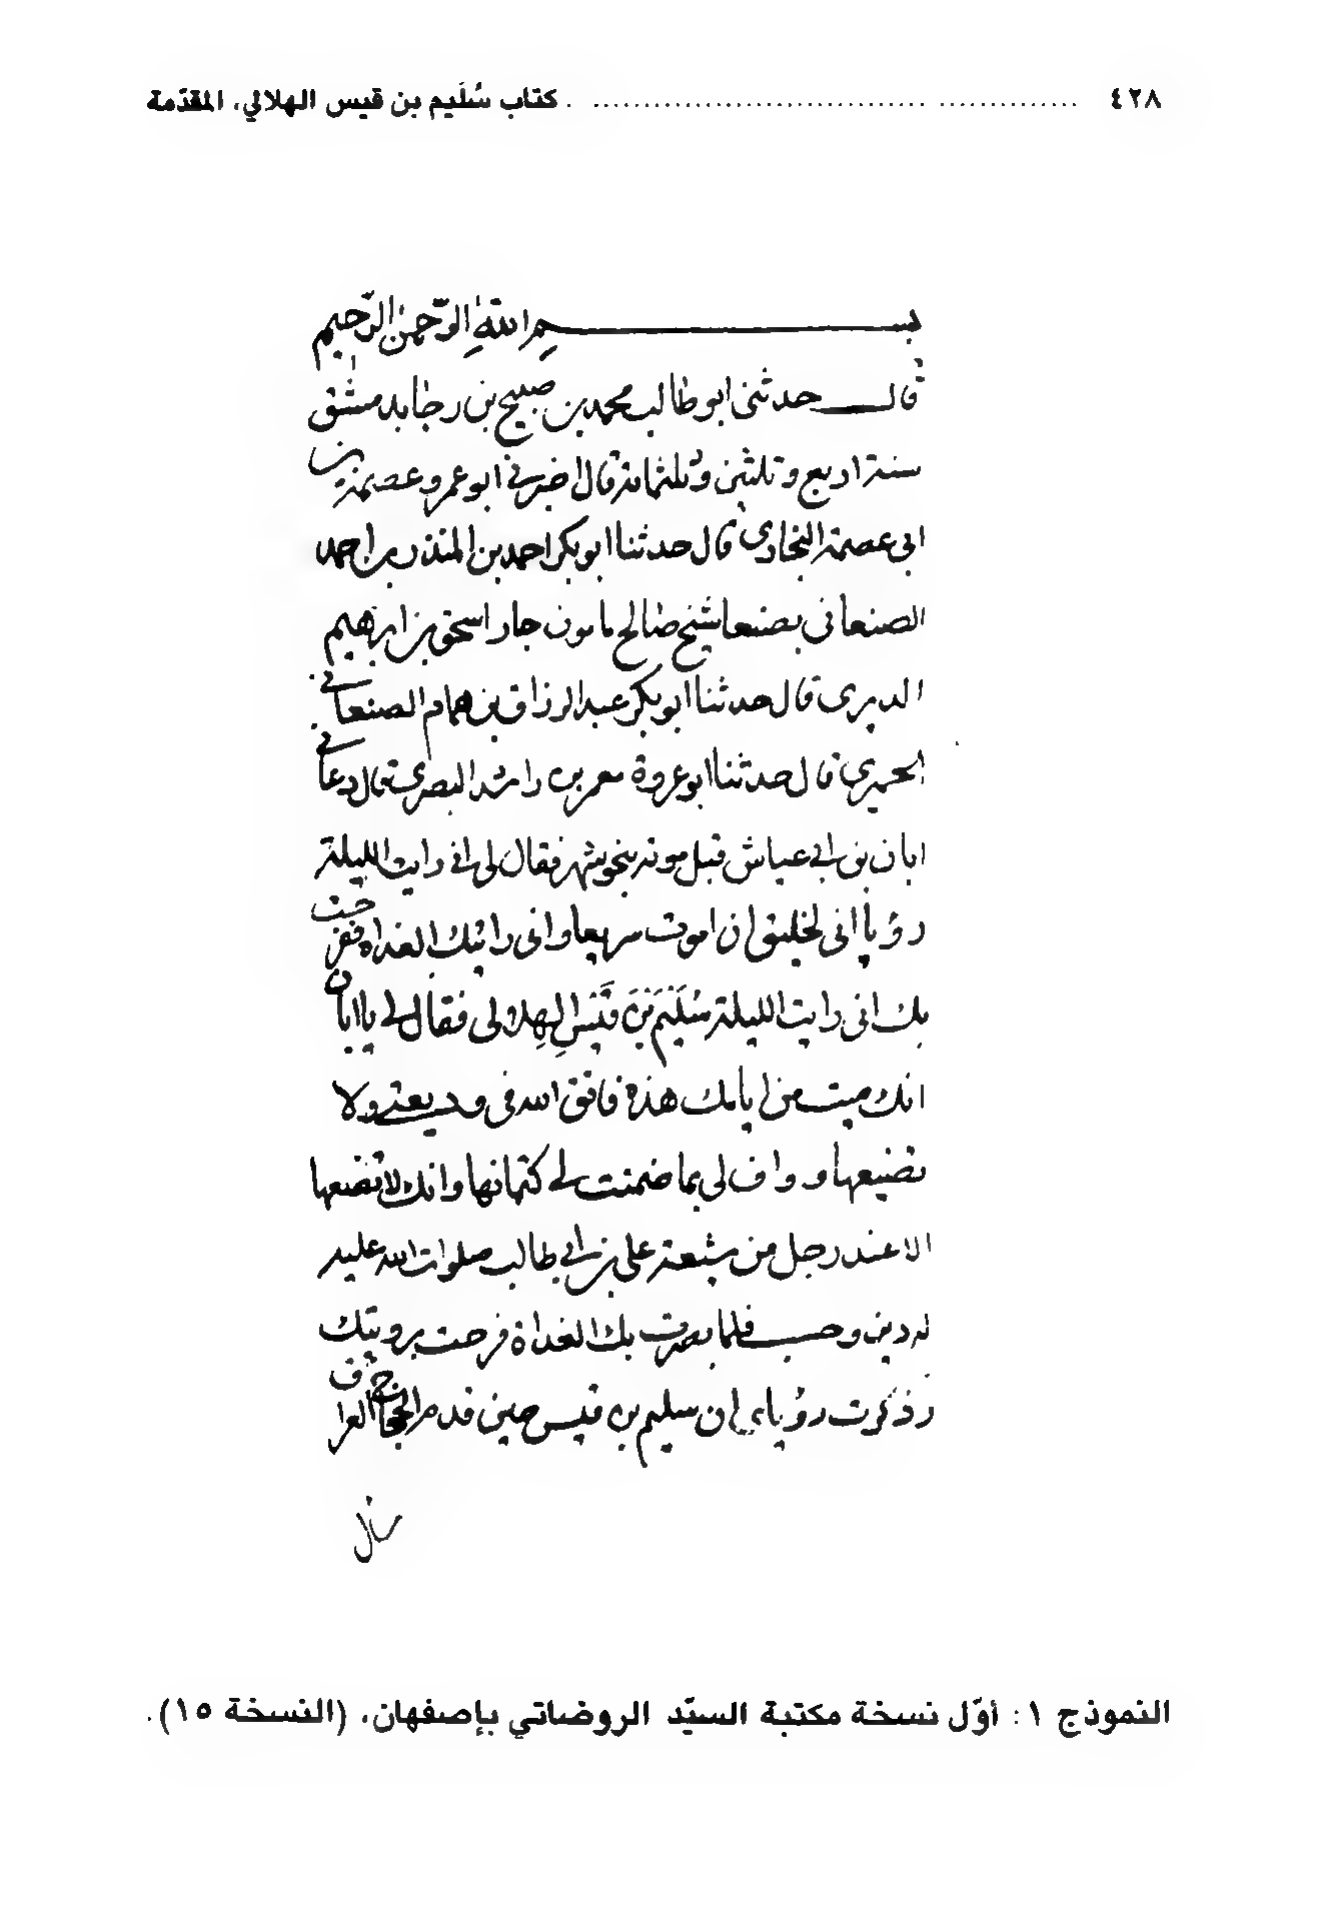 ٤٢٨ ........................................ كتاب سُلَيم بن قيس الهلالي، المقدّمة
بسم اللّه الرّحمن الرّحيم
قال حدثني ابو طالب محمد بن صبيح بن رجا بدمشق
سنة اربع وثلثين وثلثمائة قال اخبرني ابو عمرو عصمة بن
ابي عصمة البخاري قال حدثنا ابو بكر احمد بن المنذر بن احمد
الصنعاني بصنعا شيخ صالح مامون جار اسحق بن ابرهيم
الدبري قال حدثنا ابو بكر عبد الرزاق بن همام الصنعاني
الحميري قال حدثنا ابو عروة معمر بن راشد البصري قال دعاني
ابان بن ابي عياش قبل موته بنحو شهر فقال لي اني رايت الليلة
رؤيا اني لخليق ان اموت سريعا واني رائيتك الغداة ففرحت
بك اني رايت الليلة سُلَيْمَ بْنَ قَيْسِ الهِلالي فقال لي يا ابان
انك ميت من ايامك هذه فاتق الله في وديعتي ولا
تضيعها وواف لي بما ضمنت لي كتمانها وانك لا تضعها
الا عند رجل من شيعة علي بن ابي طالب صلوات الله عليه
له دين وحسب فلما بصرت بك الغداة فرحت برويتك
وذكرت رؤياي ان سليم بن قيس حين قدم الحجاج العراق
سال
النموذج ١ : أوّل نسخة مكتبة السيّد الروضاتي بإصفهان، (النسخة ١٥).